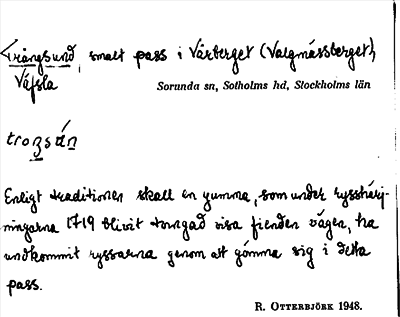 Trångsund, smalt pass i Vårberget (Valgmässberget),
Väfsla
Sorunda sn, Sotholms hd, Stockholms län
Enligt traditionen skall en gumma, som under rysshärj-
ningarna 1719 blivit tvungad visa fienden vägen, ha
undkommit ryssarna genom att gömma sig i detta
pass.
R. OTTERBJÖRK 1948.